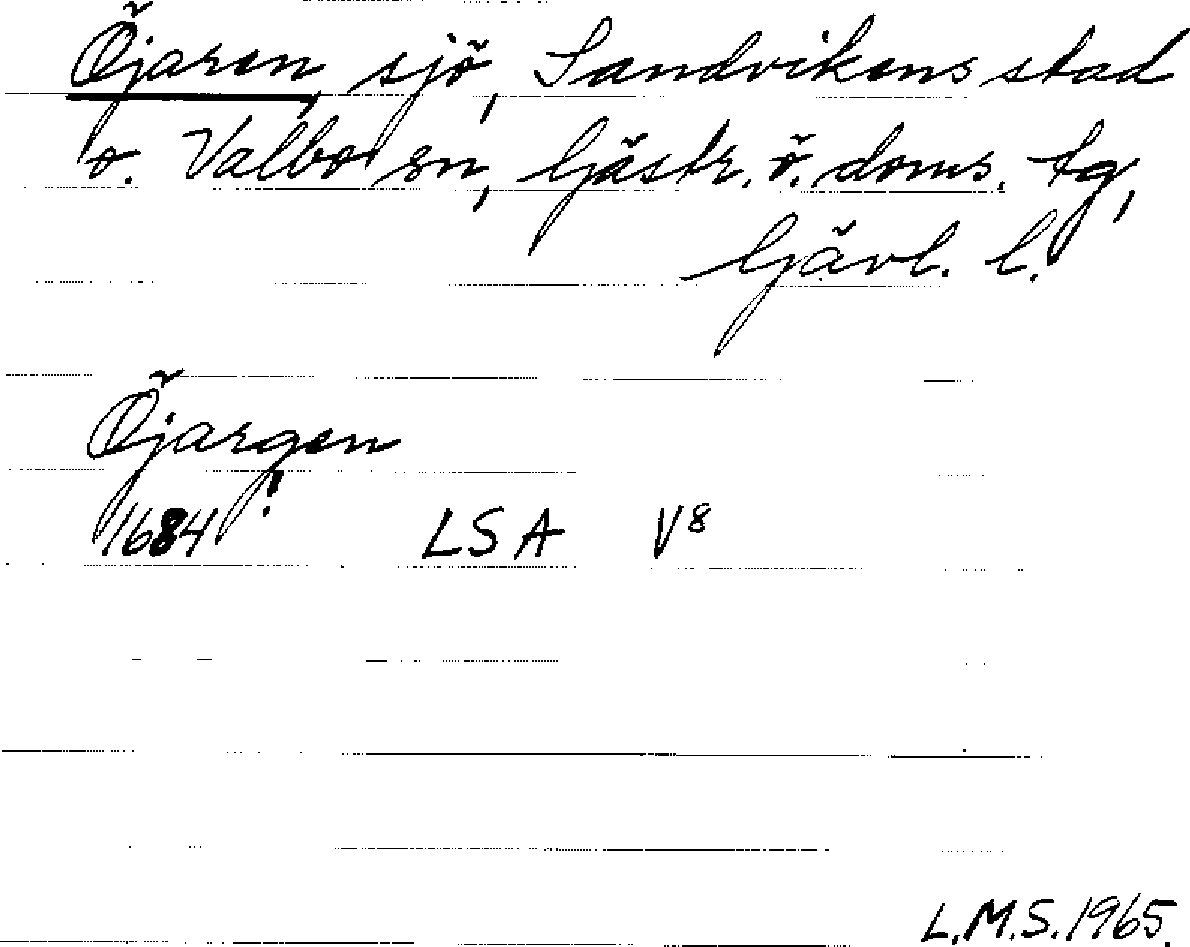 Öjaren, sjö, Sandvikens stad
o. Valbo sn, Gästr. ö. doms. tg,
Gävl. l.
Öjargen
!
1684 LSA V8
L.M.S. 1965.